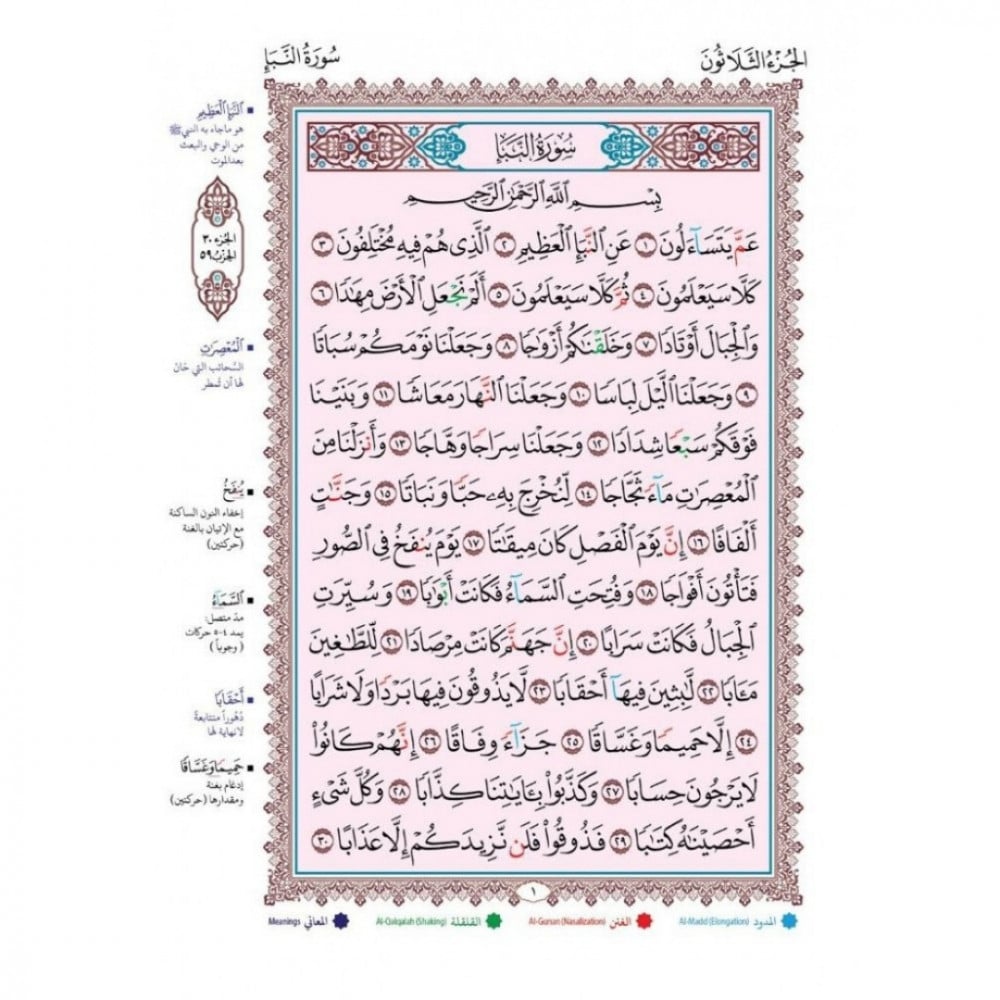 الجُزْءُ الثَّلَاثُونَ
سُورَةُ النَّبَإِ
سُورَةُ النَّبَإِ
بِسْمِ اللَّهِ الرَّحْمَٰنِ الرَّحِيمِ
عَمَّ يَتَسَآءَلُونَ ١ عَنِ النَّبَإِ الْعَظِيمِ ٢ الَّذِى هُمْ فِيهِ مُخْتَلِفُونَ ٣
كَلَّا سَيَعْلَمُونَ ٤ ثُمَّ كَلَّا سَيَعْلَمُونَ ٥ أَلَمْ نَجْعَلِ الْأَرْضَ مِهَٰدًا ٦
وَالْجِبَالَ أَوْتَادًا ٧ وَخَلَقْنَٰكُمْ أَزْوَٰجًا ٨ وَجَعَلْنَا نَوْمَكُمْ سُبَاتًا
٩ وَجَعَلْنَا الَّيْلَ لِبَاسًا ١٠ وَجَعَلْنَا النَّهَارَ مَعَاشًا ١١ وَبَنَيْنَا
فَوْقَكُمْ سَبْعًا شِدَادًا ١٢ وَجَعَلْنَا سِرَاجًا وَهَّاجًا ١٣ وَأَنزَلْنَا مِنَ
الْمُعْصِرَٰتِ مَآءً ثَجَّاجًا ١٤ لِّنُخْرِجَ بِهِۦ حَبًّا وَنَبَاتًا ١٥ وَجَنَّٰتٍ
أَلْفَافًا ١٦ إِنَّ يَوْمَ الْفَصْلِ كَانَ مِيقَٰتًا ١٧ يَوْمَ يُنفَخُ فِى الصُّورِ
فَتَأْتُونَ أَفْوَاجًا ١٨ وَفُتِحَتِ السَّمَآءُ فَكَانَتْ أَبْوَٰبًا ١٩ وَسُيِّرَتِ
الْجِبَالُ فَكَانَتْ سَرَابًا ٢٠ إِنَّ جَهَنَّمَ كَانَتْ مِرْصَادًا ٢١ لِّلطَّٰغِينَ
مَـَٔابًا ٢٢ لَّٰبِثِينَ فِيهَآ أَحْقَابًا ٢٣ لَّا يَذُوقُونَ فِيهَا بَرْدًا وَلَا شَرَابًا
٢٤ إِلَّا حَمِيمًا وَغَسَّاقًا ٢٥ جَزَآءً وِفَاقًا ٢٦ إِنَّهُمْ كَانُوا۟
لَا يَرْجُونَ حِسَابًا ٢٧ وَكَذَّبُوا۟ بِـَٔايَٰتِنَا كِذَّابًا ٢٨ وَكُلَّ شَىْءٍ
أَحْصَيْنَٰهُ كِتَٰبًا ٢٩ فَذُوقُوا۟ فَلَن نَّزِيدَكُمْ إِلَّا عَذَابًا ٣٠
١
النَّبَإِ الْعَظِيمِ
هو ماجاء به النبي ﷺ
من الوحي والبعث
بعد الموت
الجزء ٣٠
الحزب ٥٩
الْمُعْصِرَٰتِ
السَّحائب التي حَانَ
لها أن تُمطر
يُنفَخُ
إخفاء النون الساكنة
مع الإتيان بالغنة
(حركتين)
السَّمَآءُ
مدّ متصل:
يمد ٤-٥ حركات
(وجوباً)
أَحْقَابًا
دُهُوراً متتابعةً
لانهاية لها
حَمِيمًا وَغَسَّاقًا
إدغام بغنة
ومقدارها (حركتين)
المدود Al-Madd (Elongation)
الغنن Al-Gunan (Nasalization)
القلقلة Al-Qalqalah (Shaking)
المعاني Meanings